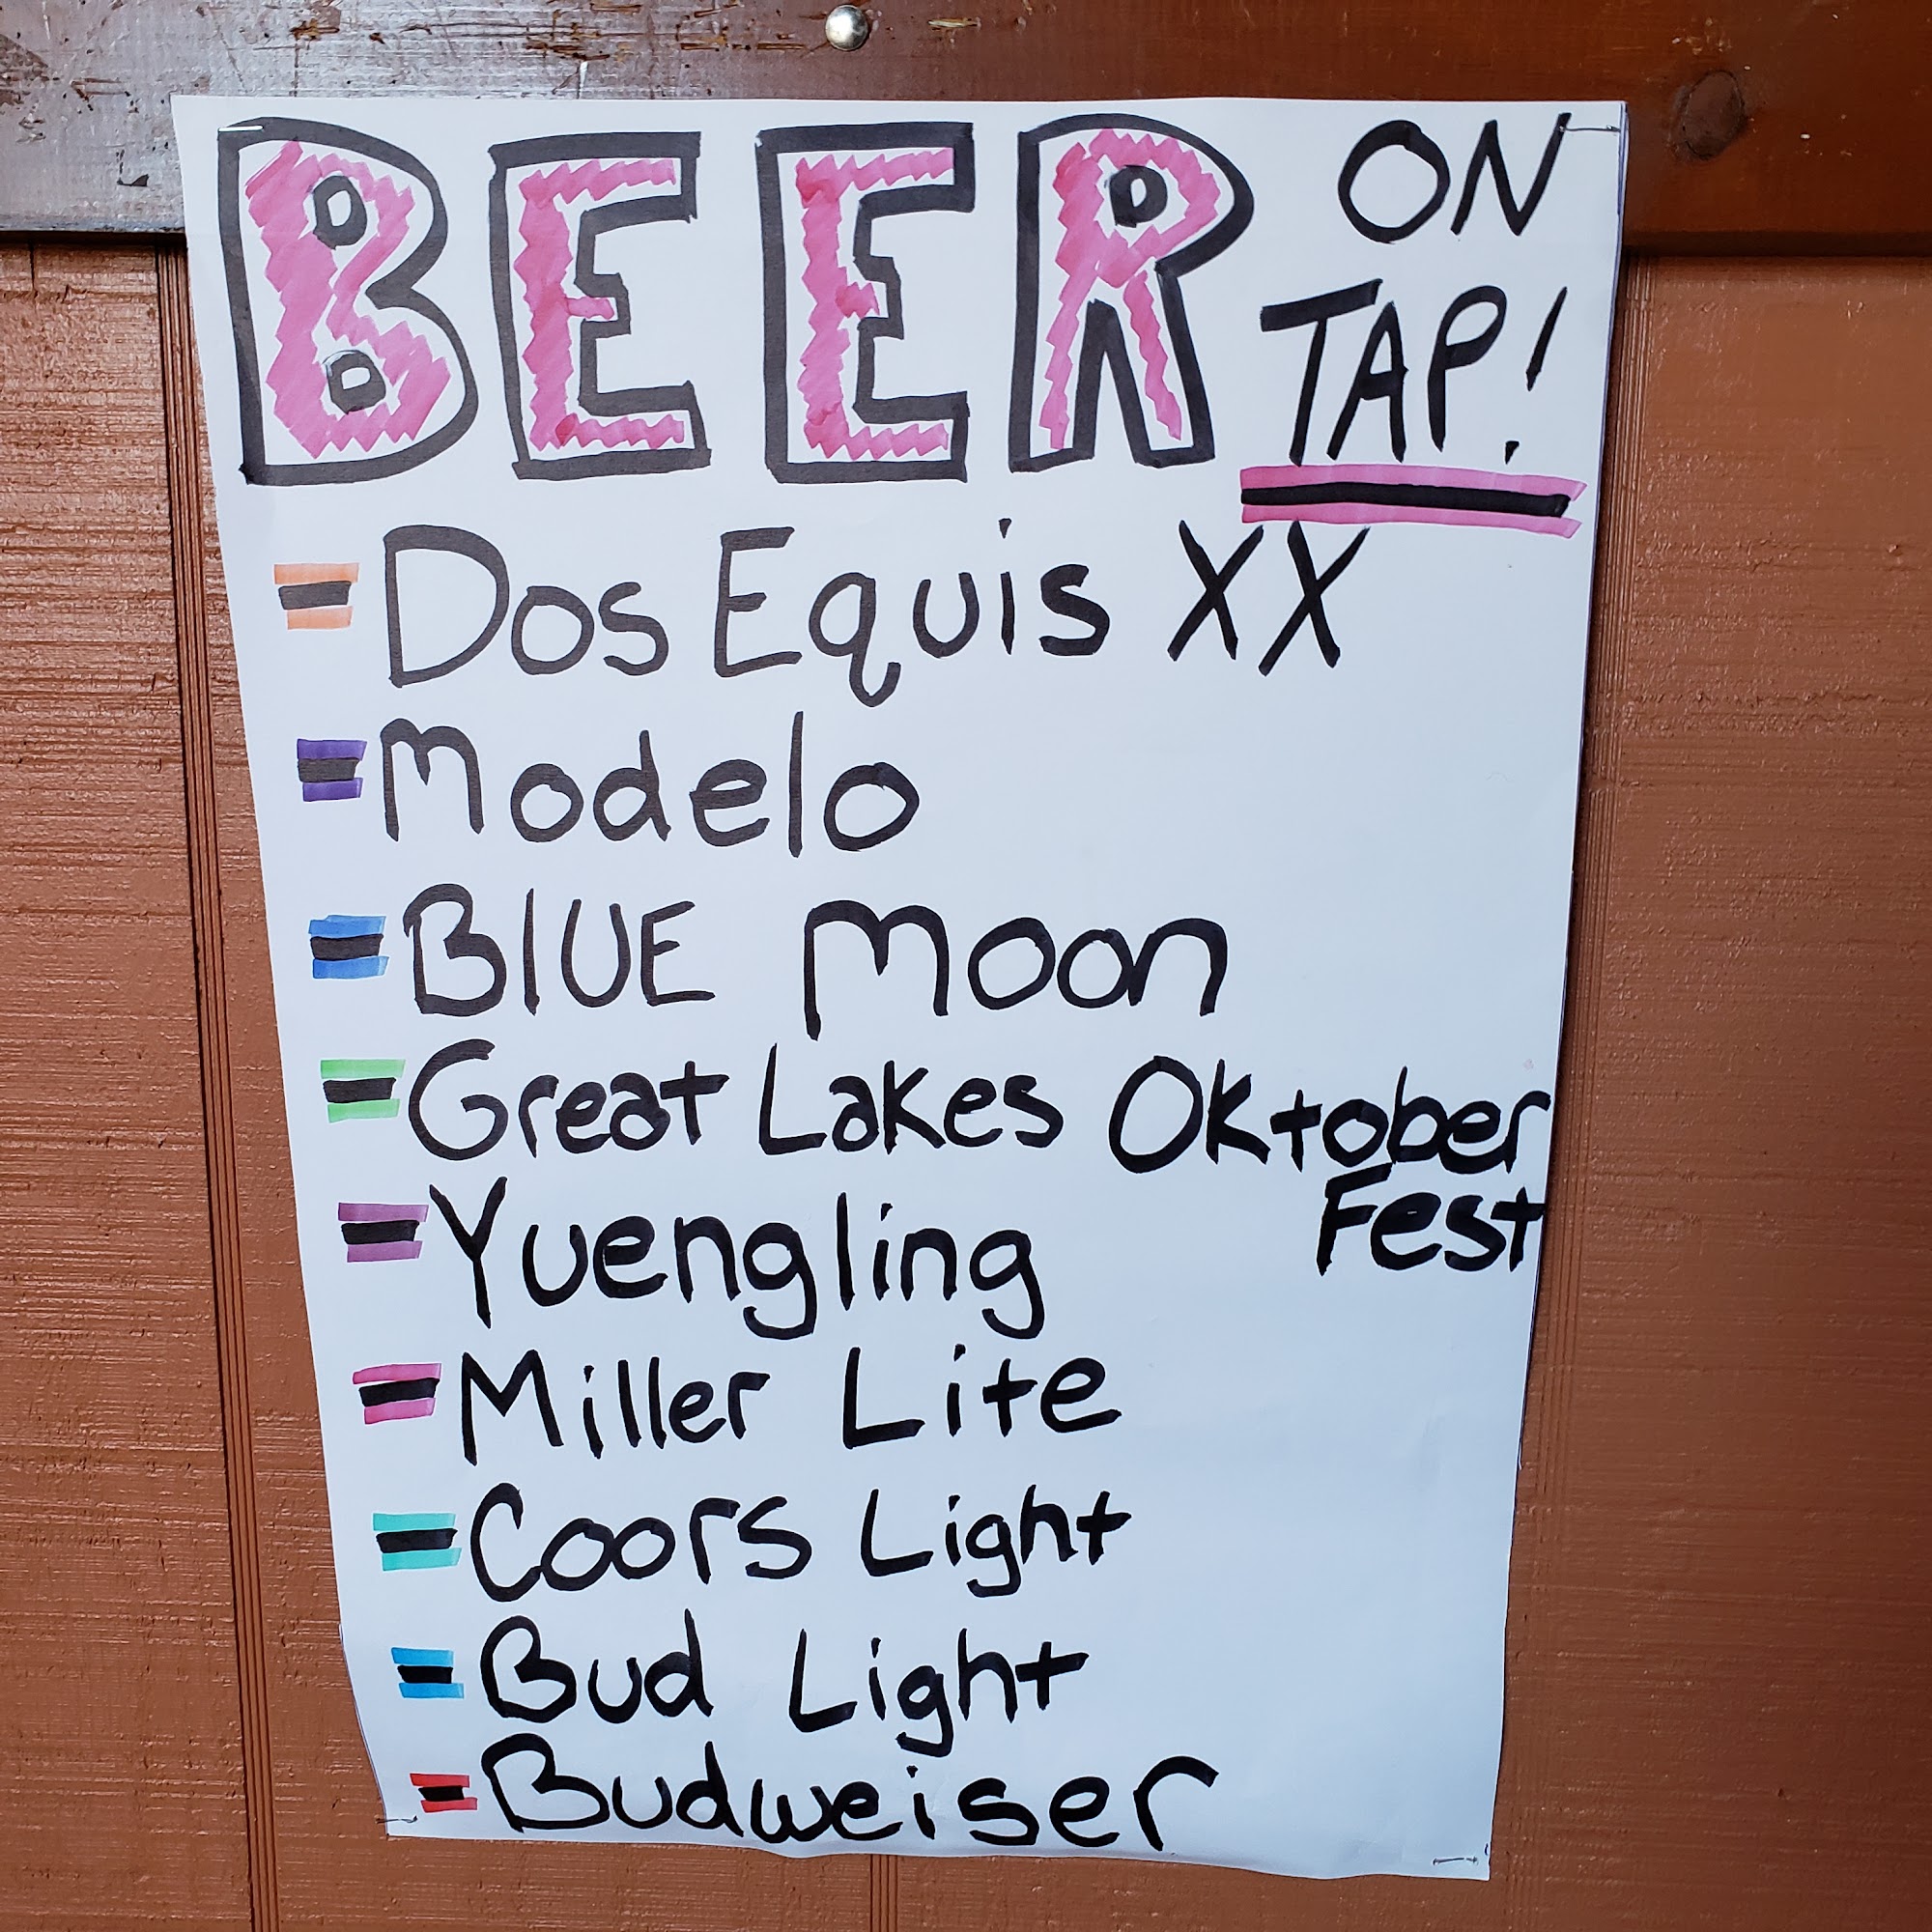 BEER ON
TAP!
- Dos Equis XX
- Modelo
- BlUE Moon
- Great Lakes Oktober
Fest
- Yuengling
- Miller Lite
- Coors Light
- Bud Light
- Budweiser